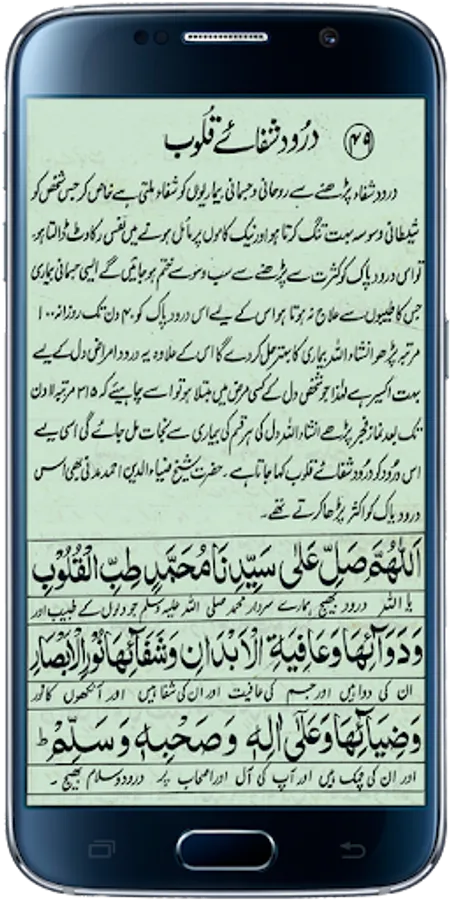 ۴۹ درود شفائے قلوب
درود شفاء پڑھنے سے روحانی و جسمانی بیماریوں کو شفاء ملتی ہے خاص کر جس شخص کو
شیطانی وسوسہ بہت تنگ کرتا ہو اور نیک کاموں پر مائل ہونے میں نفس رکاوٹ ڈالتا ہو۔
تو اس درود پاک کو کثرت سے پڑھنے سے سب وسوسے ختم ہو جائیں گے ایسی جسمانی بیماری
جس کا طبیبوں سے علاج نہ ہوتا ہو اس کے لیے اس درود پاک کو ۴۰ دن تک روزانہ ۱۰۰
مرتبہ پڑھو انشاء اللہ بیماری کا بہتر حل کر دے گا اس کے علاوہ یہ درود امراض دل کے لیے
بہت اکسیر ہے لہٰذا جو شخص دل کے کسی مرض میں مبتلا ہو تو اسے چاہیئے کہ ۳۱۵ مرتبہ ۱۱ دن
تک بعد نماز فجر پڑھے انشاء اللہ دل کی ہر قسم کی بیماری سے نجات مل جائے گی اسی لیے
اس درود کو درود شفائے قلوب کہا جاتا ہے۔ حضرت شیخ ضیاء الدین احمد مدنی بھی اس
درود پاک کو اکثر پڑھا کرتے تھے۔
اَللّٰهُمَّ صَلِّ عَلٰى سَيِّدِنَا مُحَمَّدٍ طِبِّ الْقُلُوْبِ
یا اللہ درود بھیج ہمارے سردار محمد صلی اللہ علیہ وسلم جو دلوں کے طبیب اور
وَدَوَآئِهَا وَعَافِيَةِ الْاَبْدَانِ وَشِفَآئِهَا نُوْرِ الْاَبْصَارِ
ان کی دوا ہیں اور جسم کی عافیت اور ان کی شفا ہیں اور آنکھوں کا نور
وَضِيَآئِهَا وَعَلٰٓى اٰلِهٖ وَصَحْبِهٖ وَسَلِّمْ ط
اور ان کی چمک ہیں اور آپ کی آل اور اصحاب پر درود و سلام بھیج ۔